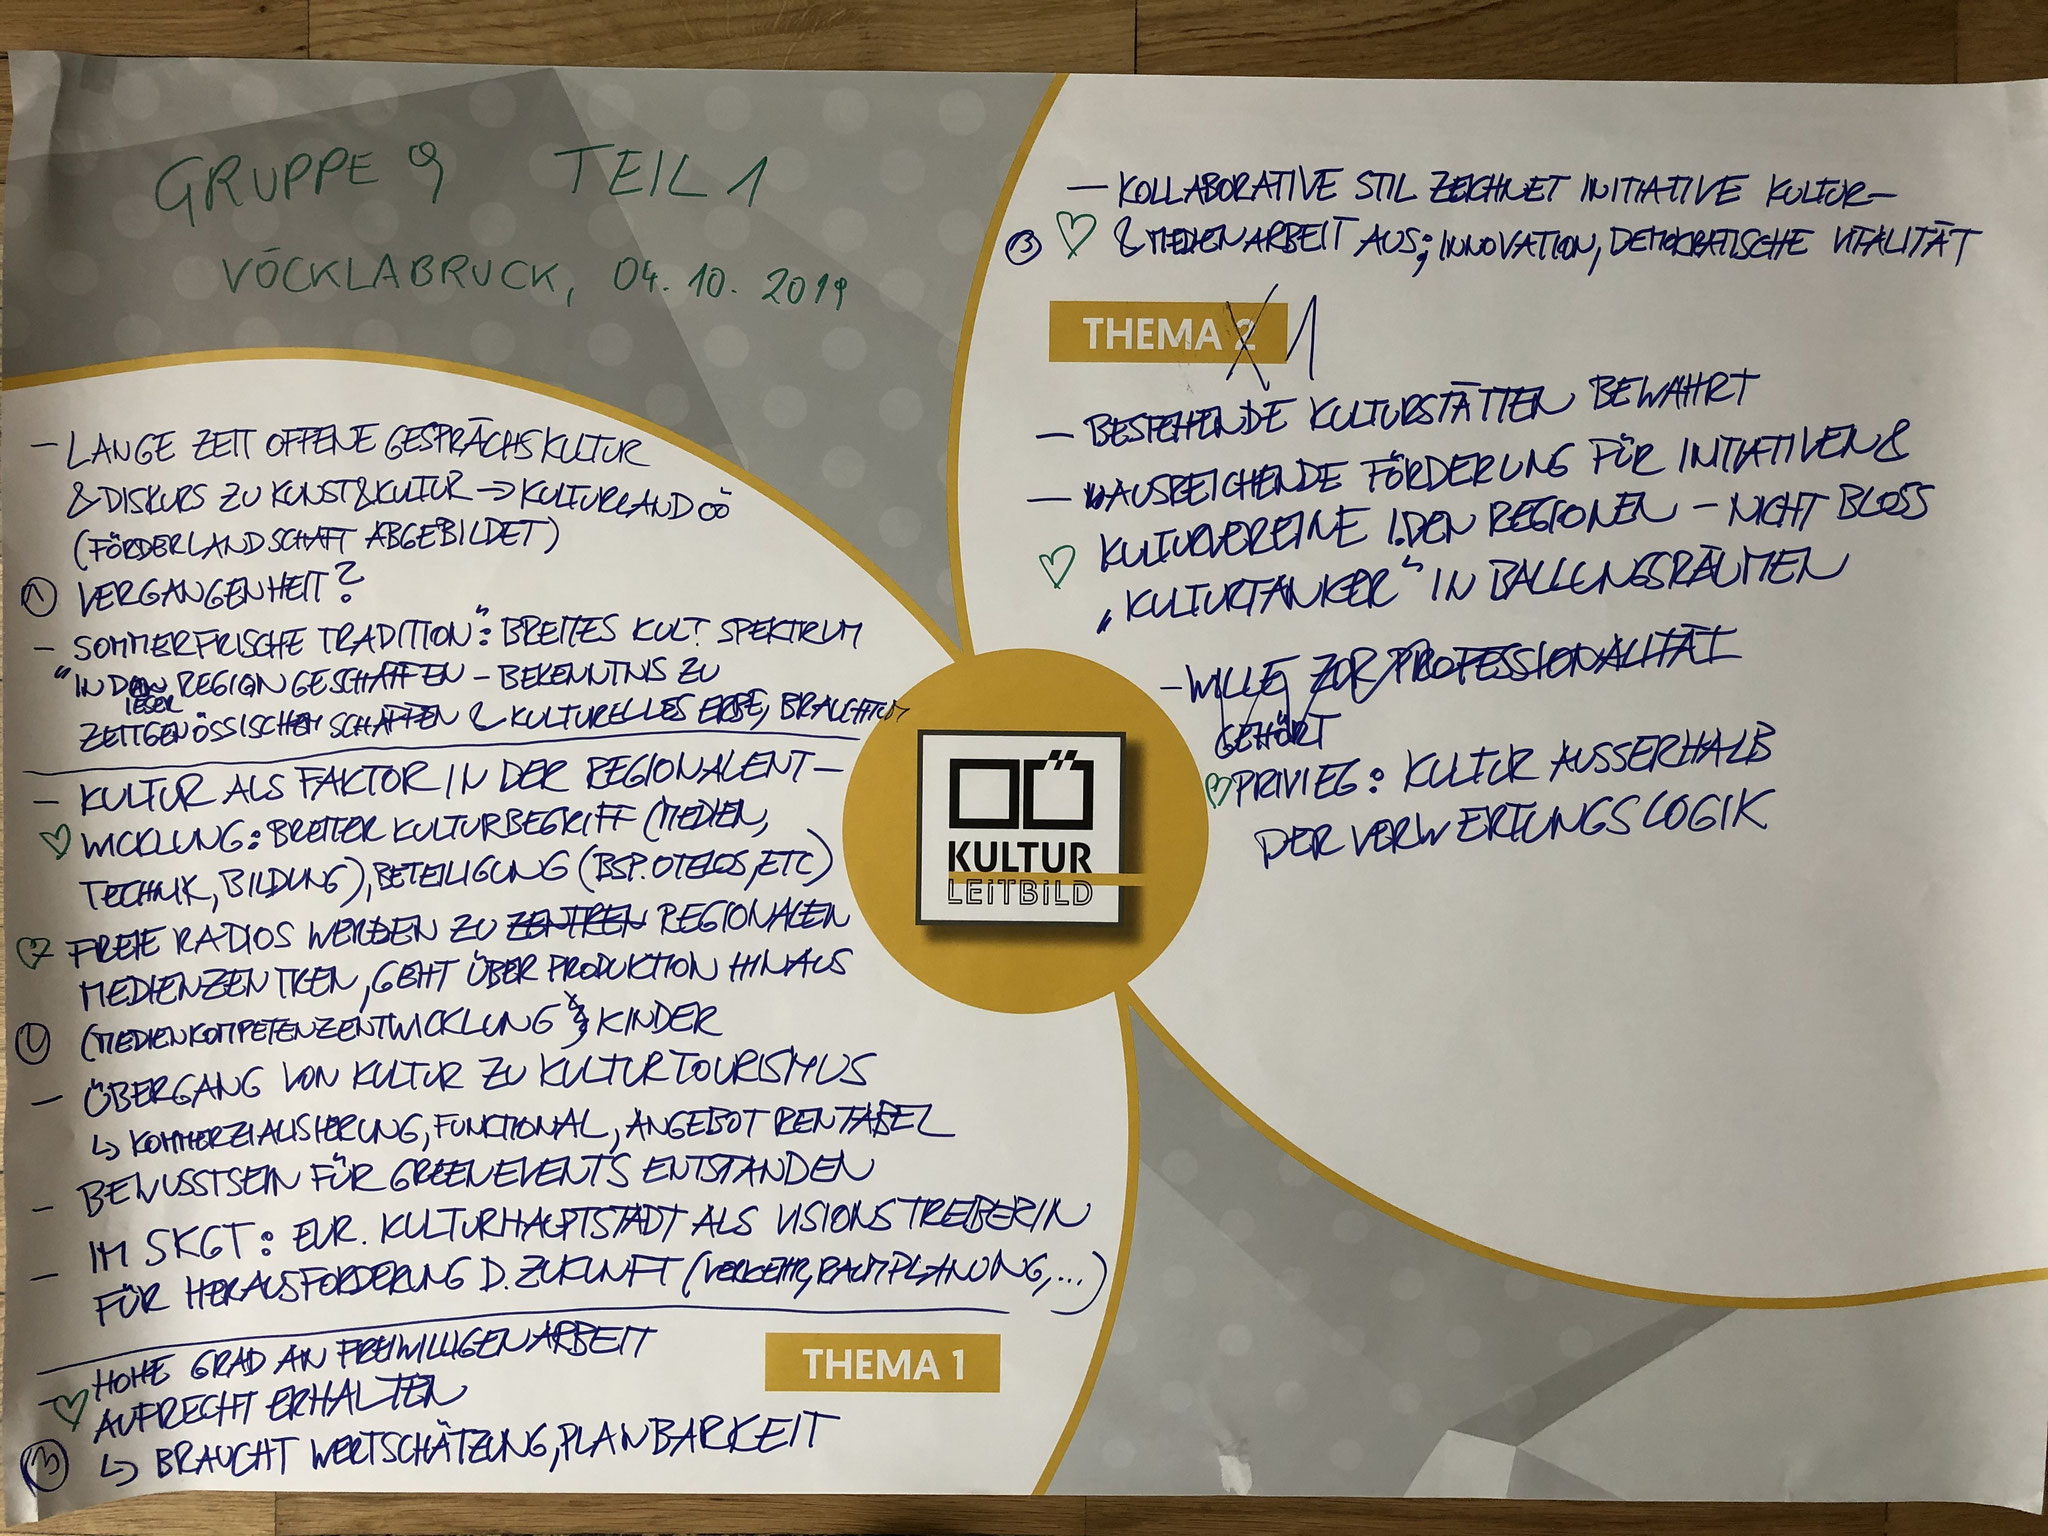 GRUPPE 9 TEIL 1
VÖCKLABRUCK, 04.10.2019
– LANGE ZEIT OFFENE GESPRÄCHSKULTUR
& DISKURS ZU KUNST & KULTUR → KULTURLAND OÖ
(FÖRDERLANDSCHAFT ABGEBILDET)
① VERGANGENHEIT?
– SOMMERFRISCHE TRADITION": BREITES KULT. SPEKTRUM
"IN DIESER REGION GESCHAFFEN – BEKENNTNIS ZU
ZEITGENÖSSISCHEM SCHAFFEN & KULTURELLES ERBE, BRAUCHTUM
– KULTUR ALS FAKTOR IN DER REGIONALENT–
♡ WICKLUNG: BREITER KULTURBEGRIFF (MEDIEN,
TECHNIK, BILDUNG), BETEILIGUNG (BSP. OTELOS, ETC)
♡ FREIE RADIOS WERDEN ZU ZENTREN REGIONALEN
MEDIENZENTREN, GEHT ÜBER PRODUKTION HINAUS
(MEDIENKOMPETENZENTWICKLUNG KINDER
– ÜBERGANG VON KULTUR ZU KULTURTOURISMUS
↳ KOMMERZIALISIERUNG, FUNKTIONAL, ANGEBOT RENTABEL
– BEWUSSTSEIN FÜR GREENEVENTS ENTSTANDEN
– IM SKGT: EUR. KULTURHAUPTSTADT ALS VISIONSTREIBERIN
FÜR HERAUSFORDERUNG D. ZUKUNFT (VERKEHR, RAUMPLANUNG, ...)
– HOHE GRAD AN FREIWILLIGENARBEIT
♡ AUFRECHT ERHALTEN
③ ↳ BRAUCHT WERTSCHÄTZUNG, PLANBARKEIT
THEMA 1
OÖ
KULTUR
LEITBILD
– KOLLABORATIVE STIL ZEICHNET INITIATIVE KULTUR–
③ ♡ & MEDIENARBEIT AUS; INNOVATION, DEMOKRATISCHE VITALITÄT
THEMA 2 1
– BESTEHENDE KULTURSTÄTTEN BEWAHRT
– AUSREICHENDE FÖRDERUNG FÜR INITIATIVEN &
♡ KULTURVEREINE I. DEN REGIONEN – NICHT BLOSS
„KULTURTANKER" IN BALLUNGSRÄUMEN
– WILLE ZUR PROFESSIONALITÄT
GEHÖRT
♡ PRIVIEG: KULTUR AUSSERHALB
DER VERWERTUNGSLOGIK